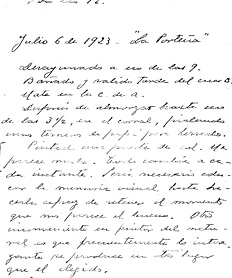 Julio 6 de 1923 - "La Porteña"
Desayunado a eso de las 9.
Bañado y salido tarde del cuarto.
Mate en la c. de a.
Después de almorzar hasta eso
de las 3½, en el corral, pialando
unos terneros de por herrados.
Pinté una de sol. Me
parece mala. Todo cambia a ca-
da instante. Será necesario edu-
car la memoria visual hasta ha-
cerla capaz de retener el momento
que nos parece el bueno. Otro
inconveniente en pintar del natu-
ral es que frecuentemente lo inte-
gante se produce en otro lugar
que el elegido.